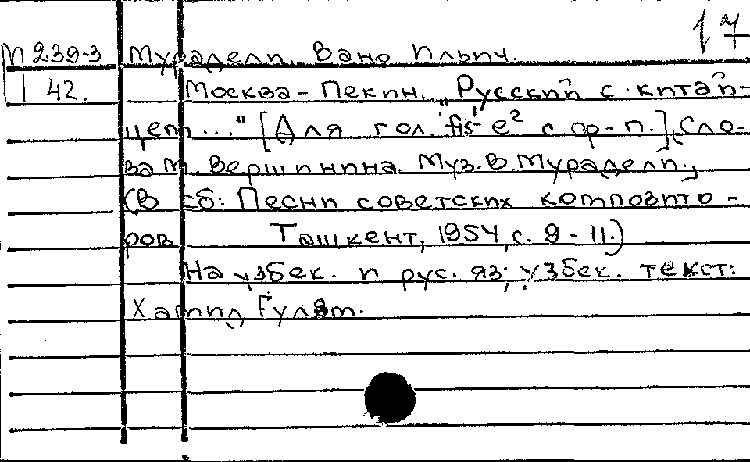 17
М 239-3 Мурадели, Вано Ильич.
I 42. Москва - Пекин. „Русский с китай-
цем..." [Для гол. fis¹ e² с ф-п.] Сло-
ва М. Вершинина. Муз. В. Мурадели.,
(В сб: Песни советских композито-
ров Ташкент, 1954, с. 9-11.)
На узбек. и рус. яз; узбек. текст:
Хамид Гулям.